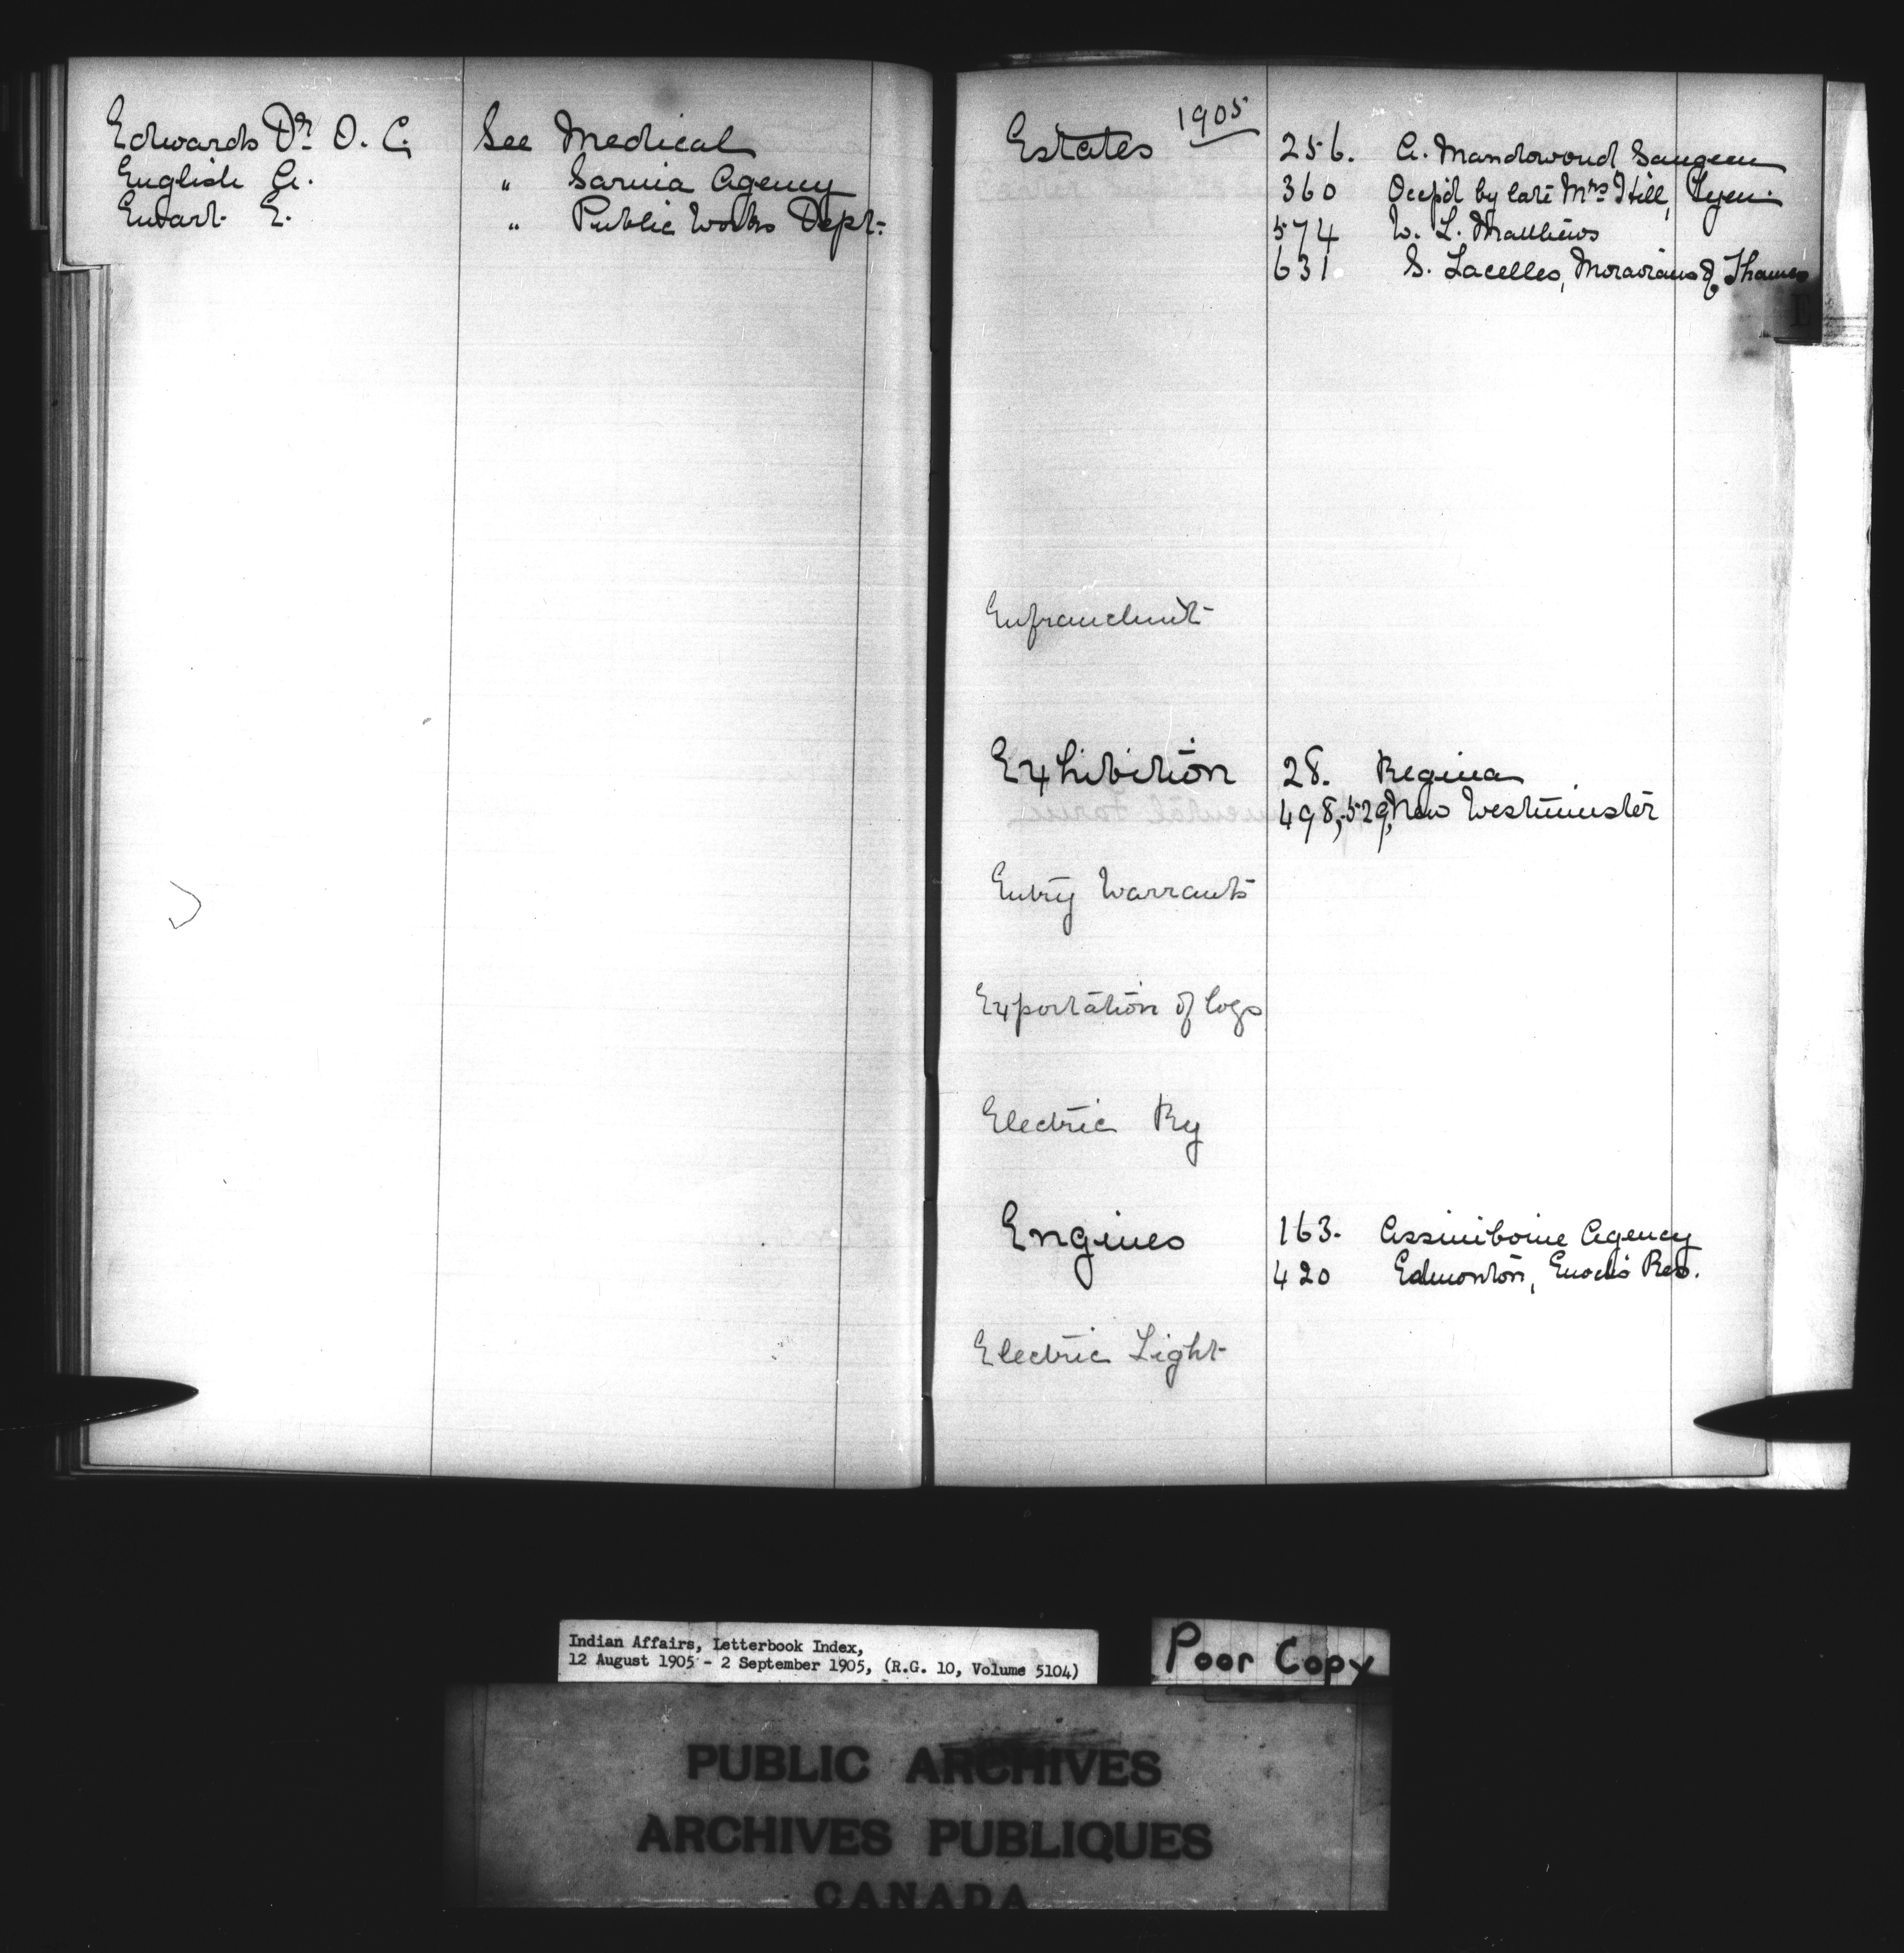 Edwards Dr. O. C. See Medical
English A. " Sarnia Agency
Ewart E. " Public Works Dept.
Estates 1905
256. A. Mandowoud Saugeen
360 Occp'd by late Mrs. Hill, Tyen.
574 W. L. Matthews
631. S. Lacelles, Moravians of Thames
E
Enfranchm't
Exhibition 28. Regina
498, 529, New Westminster
Entry Warrants
Exportation of logs
Electric Ry
Engines 163. Assiniboine Agency
420 Edmonton, Enoch's Res.
Electric Light
Indian Affairs, Letterbook Index,
12 August 1905 - 2 September 1905, (R.G. 10, Volume 5104)
Poor Copy
PUBLIC ARCHIVES
ARCHIVES PUBLIQUES
CANADA